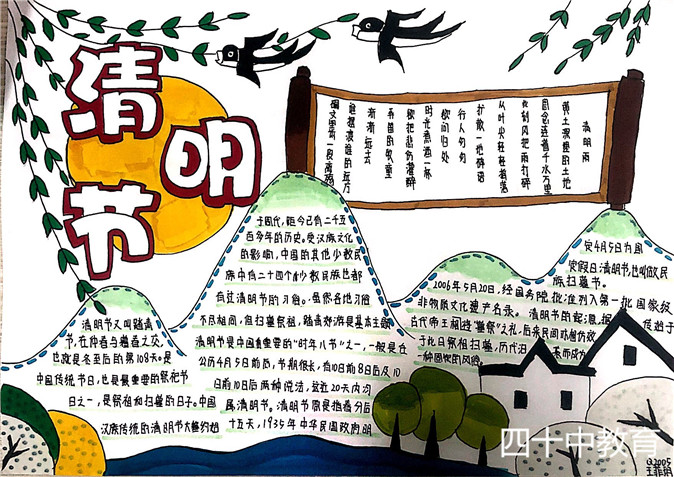 清明节
清明雨
黄土深埋的土地
思念连着千水万里
夜刮风把雨打碎
从叶尖往往滴落
扩散一地碎语
行人匆匆
欲问归处
时光煮酒一杯
欲把悲伤灌醉
春雷的歌里
渐渐远去
谁握凄谁的远方
清明节又叫踏青
节，在仲春与暮春之交，
也就是冬至后的第108天。是
中国传统节日，也是最重要的祭祀节
日之一，是祭祖和扫墓的日子。中国
汉族传统的清明节大约始
于周代，距今已有二千五
百多年的历史。受汉族文化
的影响，中国的其他少数民
族中有二十四个少数民族也都
有过清明节的习俗。虽然各地习俗
不尽相同，但扫墓祭祖，踏青郊游是基本主题
清明节是中国重要的“时年八节”之一，一般是在
公历4月5号前后，节期很长，有10日前8日后及10
日前10日后两种说法，这近20天内均
属清明节。清明节原是指春分后
十五天，1935年中华民国政府明
定4月5日为国
定假日清明节也叫做民
族扫墓节。
2006年5月20日，经国务院批准列入第一批国家级
非物质文化遗产名录。清明节的起源，据传始于
古代帝王将相“墓祭”之礼，后来民间亦相仿效
于此日祭祖扫墓，历代沿袭而成为
一种固定的风俗。
四十中教育
Q2005
王菲明